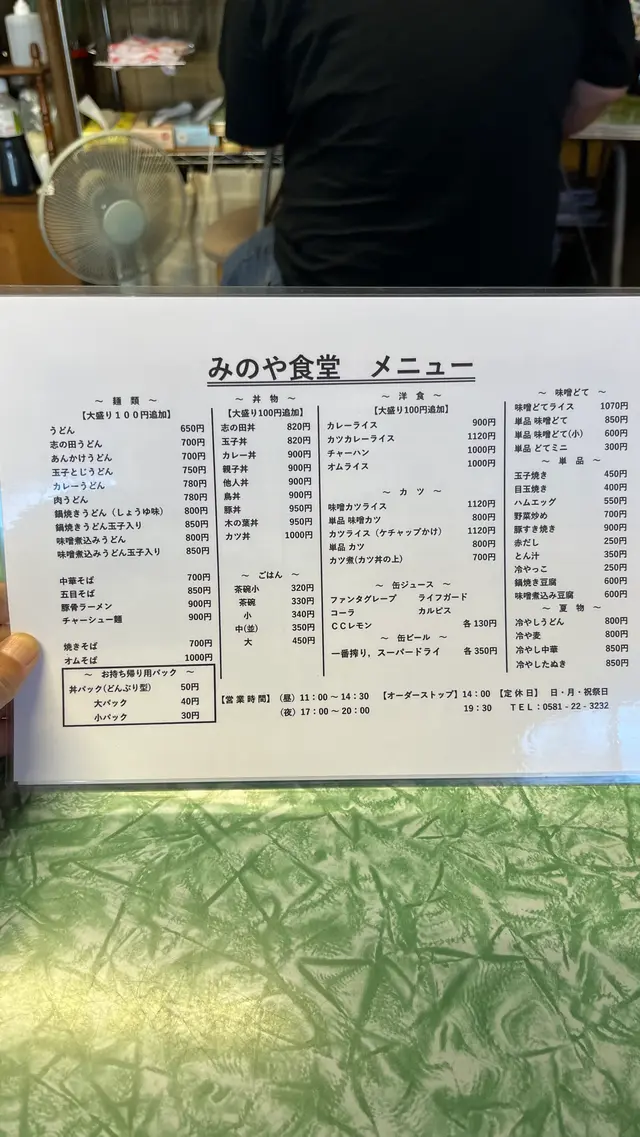 みのや食堂　メニュー
～ 麺 類 ～
【大盛り１００円追加】
うどん 650円
志の田うどん 700円
あんかけうどん 700円
玉子とじうどん 750円
カレーうどん 780円
肉うどん 780円
鍋焼きうどん（しょうゆ味） 800円
鍋焼きうどん玉子入り 850円
味噌煮込みうどん 800円
味噌煮込みうどん玉子入り 850円
中華そば 700円
五目そば 850円
豚骨ラーメン 900円
チャーシュー麺 900円
焼きそば 700円
オムそば 1000円
～ お持ち帰り用パック ～
丼パック(どんぶり型) 50円
大パック 40円
小パック 30円
～ 丼 物 ～
【大盛り100円追加】
志の田丼 820円
玉子丼 820円
カレー丼 900円
親子丼 900円
他人丼 900円
鳥丼 900円
豚丼 950円
木の葉丼 950円
カツ丼 1000円
～ ごはん ～
茶碗小 320円
茶碗 330円
小 340円
中(並) 350円
大 450円
～ 洋 食 ～
【大盛り100円追加】
カレーライス 900円
カツカレーライス 1120円
チャーハン 1000円
オムライス 1000円
～ カ ツ ～
味噌カツライス 1120円
単品 味噌カツ 800円
カツライス（ケチャップかけ） 1120円
単品 カツ 800円
カツ煮(カツ丼の上) 700円
～ 缶ジュース ～
ファンタグレープ ライフガード
コーラ カルピス
ＣＣレモン 各 130円
～ 缶ビール ～
一番搾り，スーパードライ 各 350円
～ 味噌どて ～
味噌どてライス 1070円
単品 味噌どて 850円
単品 味噌どて(小) 600円
単品 どてミニ 300円
～ 単 品 ～
玉子焼き 450円
目玉焼き 400円
ハムエッグ 550円
野菜炒め 700円
豚すき焼き 900円
赤だし 250円
とん汁 350円
冷やっこ 250円
鍋焼き豆腐 600円
味噌煮込み豆腐 600円
～ 夏 物 ～
冷やしうどん 800円
冷や麦 800円
冷やし中華 850円
冷やしたぬき 850円
【営 業 時 間】 （昼）11：00 ～ 14：30 【オーダーストップ】14：00 【定 休 日】 日・月・祝祭日
（夜）17：00 ～ 20：00 19：30 ＴＥＬ：0581 - 22 - 3232